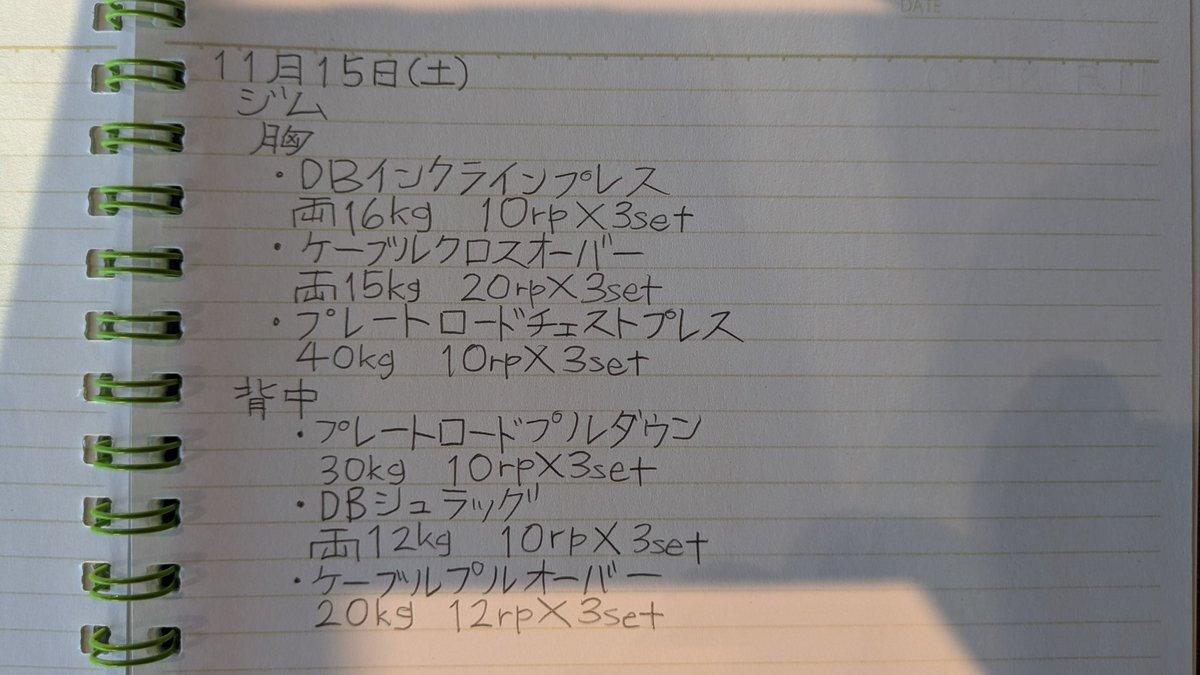 DATE
11月15日(土)
ジム
胸
・DBインクラインプレス
両16kg 10rp×3set
・ケーブルクロスオーバー
両15kg 20rp×3set
・プレートロードチェストプレス
40kg 10rp×3set
背中
・プレートロードプルダウン
30kg 10rp×3set
・DBシュラッグ
両12kg 10rp×3set
・ケーブルプルオーバー
20kg 12rp×3set